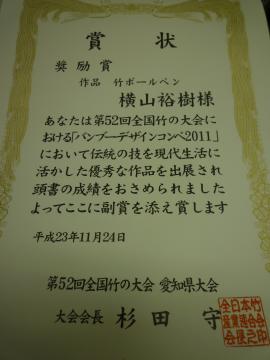 賞状
奨励賞
作品 竹ボールペン
横山裕樹様
あなたは第52回全国竹の大会に
おける「バンブーデザインコンペ2011」
において伝統の技を現代生活に
活かした優秀な作品を出展され
頭書の成績をおさめられました
よってここに副賞を添え賞します
平成23年11月24日
第52回全国竹の大会 愛知県大会
大会会長 杉田 守
全日本竹
産業連合会
会長之印